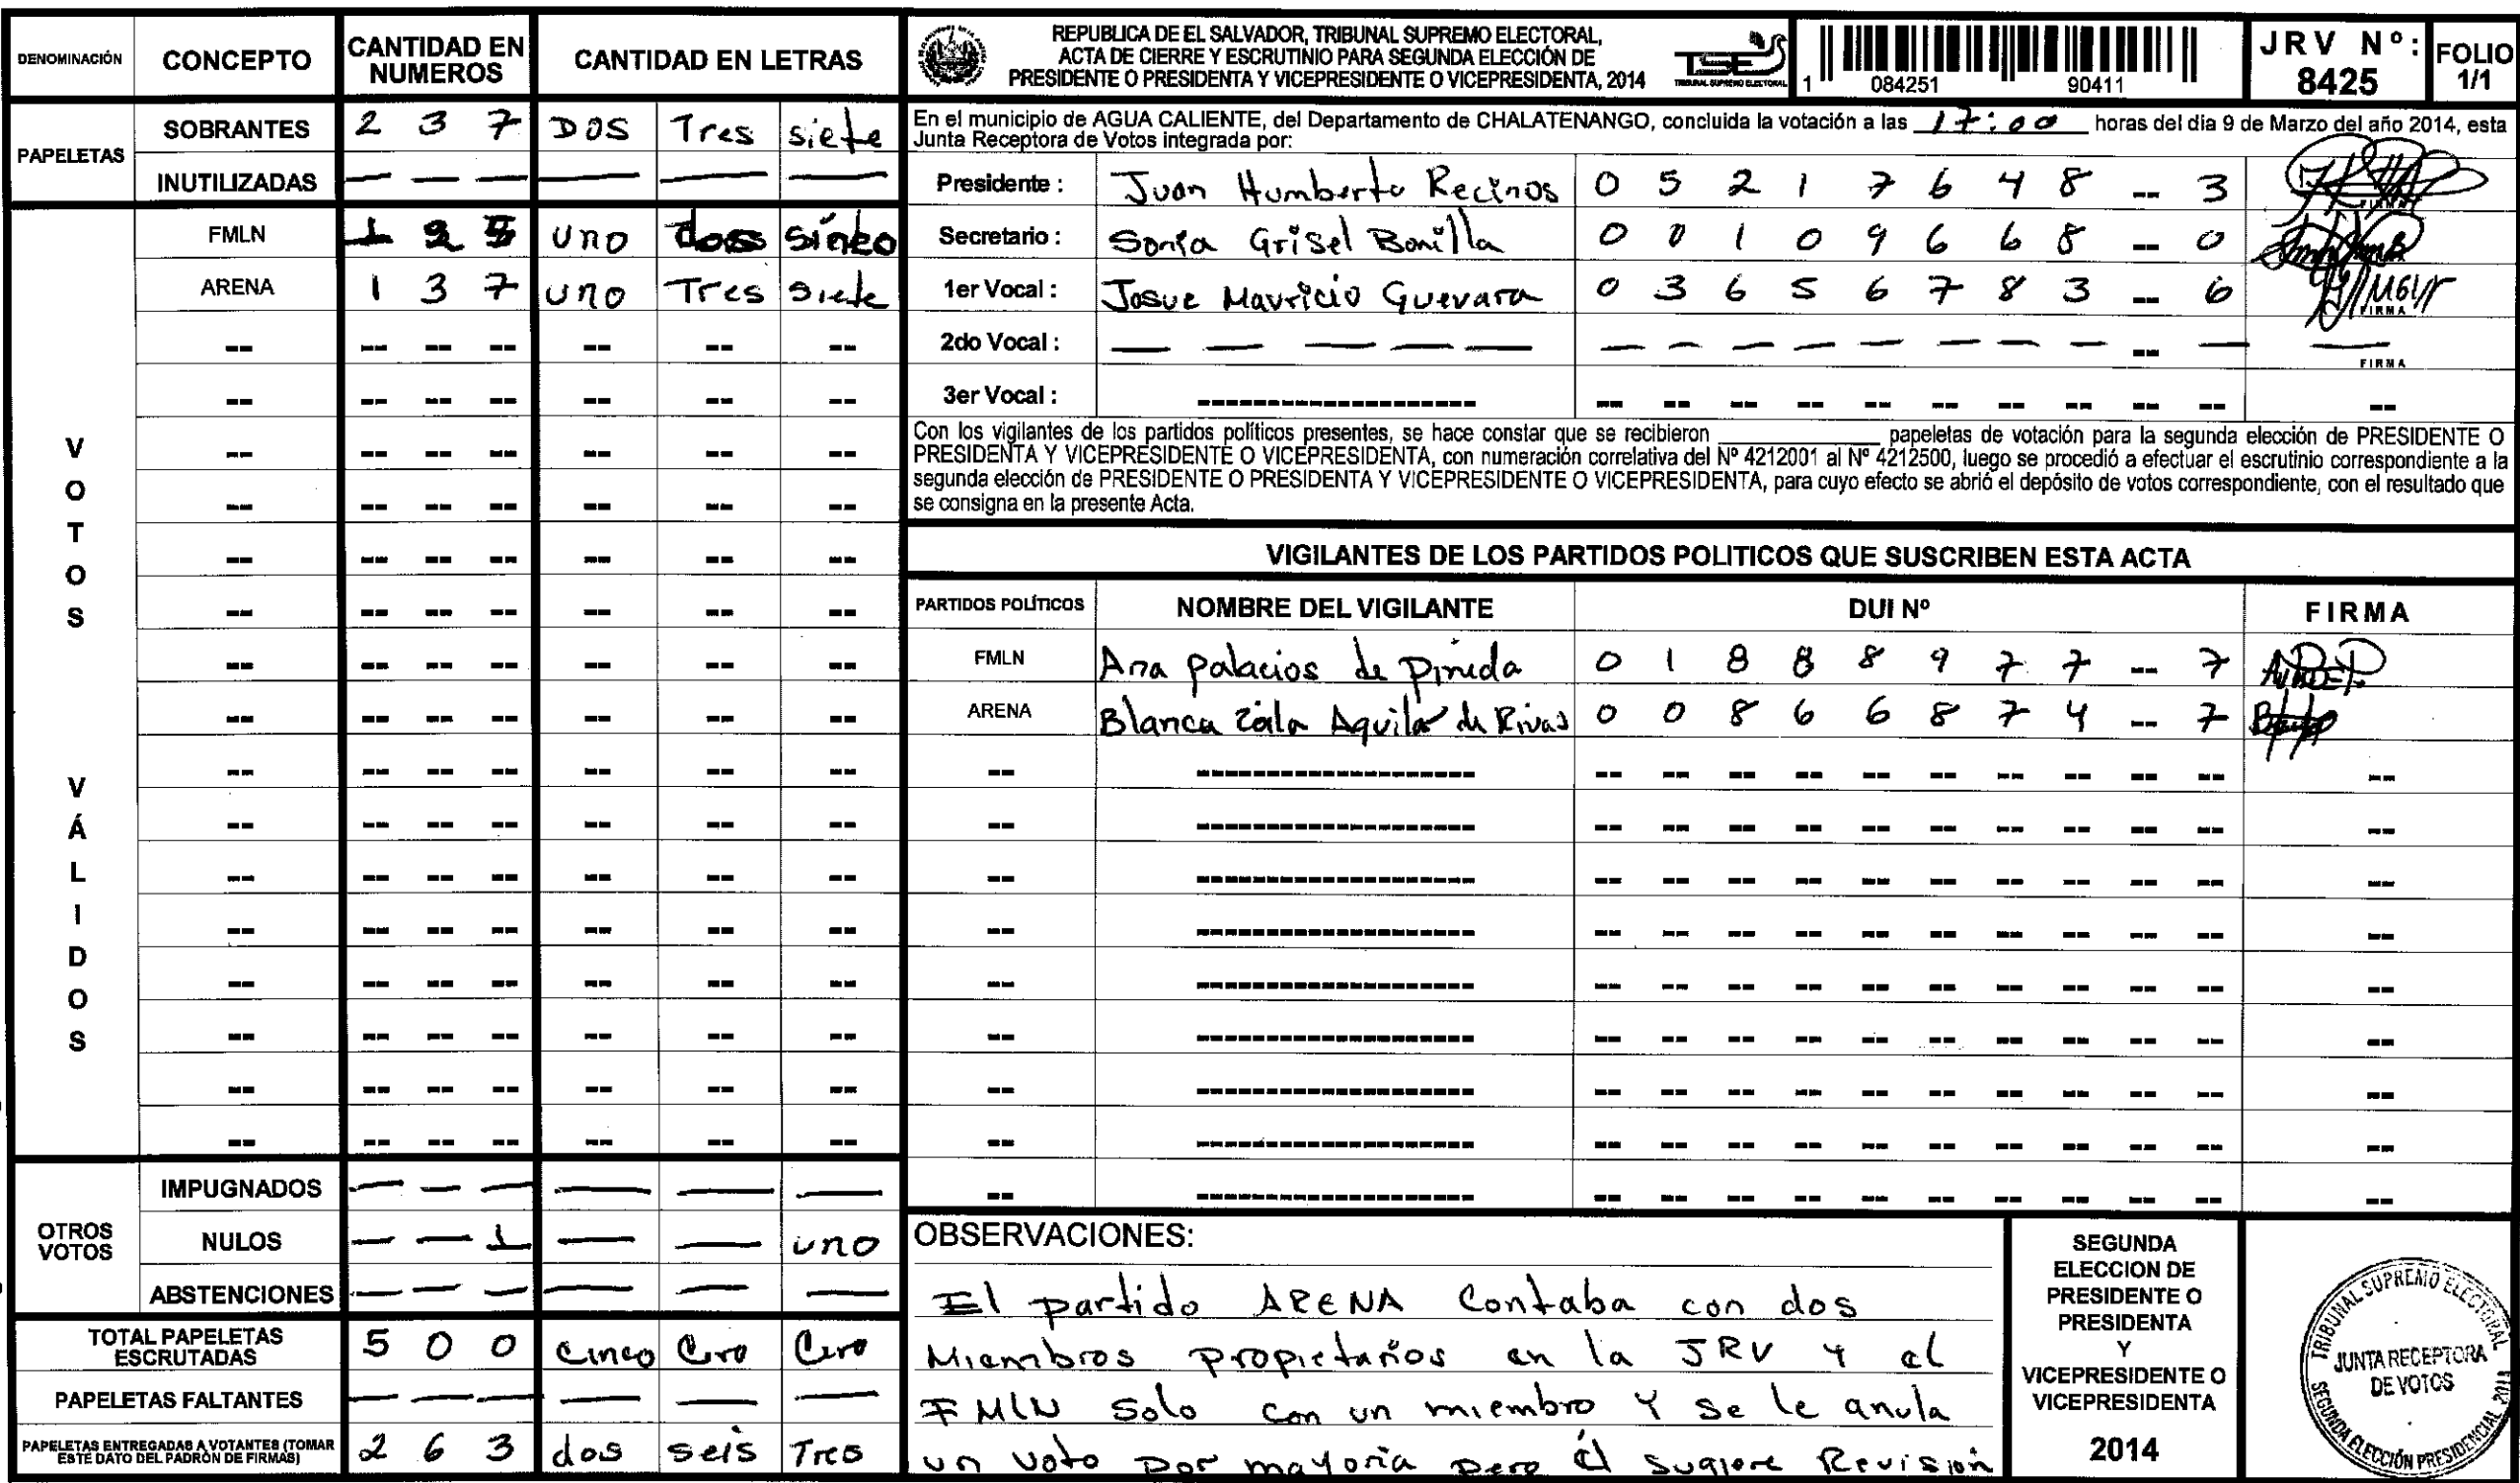 DENOMINACIÓN CONCEPTO CANTIDAD EN NUMEROS CANTIDAD EN LETRAS
PAPELETAS
SOBRANTES 2 3 7 DOS Tres siete
INUTILIZADAS — — — — — —
VOTOS VÁLIDOS
FMLN 1 2 5 uno dos sinko
ARENA 1 3 7 uno Tres siete
OTROS VOTOS
IMPUGNADOS — — — — — —
NULOS — — 1 — — uno
ABSTENCIONES — — — — — —
TOTAL PAPELETAS ESCRUTADAS 5 0 0 Cinco Cero Cero
PAPELETAS FALTANTES — — — — — —
PAPELETAS ENTREGADAS A VOTANTES (TOMAR ESTE DATO DEL PADRÓN DE FIRMAS) 2 6 3 dos seis Tres
REPUBLICA DE EL SALVADOR, TRIBUNAL SUPREMO ELECTORAL,
ACTA DE CIERRE Y ESCRUTINIO PARA SEGUNDA ELECCIÓN DE
PRESIDENTE O PRESIDENTA Y VICEPRESIDENTE O VICEPRESIDENTA, 2014
TSE
TRIBUNAL SUPREMO ELECTORAL
1 084251 90411
JRV Nº: 8425
FOLIO 1/1
En el municipio de AGUA CALIENTE, del Departamento de CHALATENANGO, concluida la votación a las 17:00 horas del dia 9 de Marzo del año 2014, esta
Junta Receptora de Votos integrada por:
Presidente : Juan Humberto Recinos 0 5 2 1 7 6 4 8 -- 3 FIRMA
Secretario : Sonia Grisel Bonilla 0 0 1 0 9 6 6 8 -- 0
1er Vocal : Josue Mauricio Guevara 0 3 6 5 6 7 8 3 -- 6 FIRMA
2do Vocal : — — — — — — — — — — — — — — -- — — FIRMA
3er Vocal : -- -- -- -- -- -- -- -- -- -- --
Con los vigilantes de los partidos políticos presentes, se hace constar que se recibieron ____________ papeletas de votación para la segunda elección de PRESIDENTE O
PRESIDENTA Y VICEPRESIDENTE O VICEPRESIDENTA, con numeración correlativa del Nº 4212001 al Nº 4212500, luego se procedió a efectuar el escrutinio correspondiente a la
segunda elección de PRESIDENTE O PRESIDENTA Y VICEPRESIDENTE O VICEPRESIDENTA, para cuyo efecto se abrió el depósito de votos correspondiente, con el resultado que
se consigna en la presente Acta.
VIGILANTES DE LOS PARTIDOS POLITICOS QUE SUSCRIBEN ESTA ACTA
PARTIDOS POLÍTICOS NOMBRE DEL VIGILANTE DUI Nº FIRMA
FMLN Ana Palacios de Pineda 0 1 8 8 8 9 7 7 -- 7
ARENA Blanca Zoila Aguilar de Rivas 0 0 8 6 6 8 7 4 -- 7
OBSERVACIONES:
El partido ARENA Contaba con dos
Miembros propietarios en la JRV y el
FMLN Solo Con un miembro Y se le anula
un voto por mayoria pero él sugiere Revisión
SEGUNDA
ELECCION DE
PRESIDENTE O
PRESIDENTA
Y
VICEPRESIDENTE O
VICEPRESIDENTA
2014
TRIBUNAL SUPREMO ELECTORAL
JUNTA RECEPTORA
DE VOTOS
SEGUNDA ELECCIÓN PRESIDENCIAL 2014